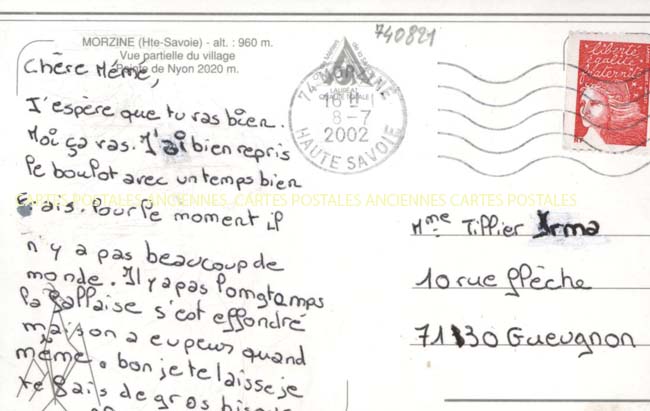 740821
MORZINE (Hte-Savoie) - alt. : 960 m.
Vue partielle du village
Pointe de Nyon 2020 m.
Chère Mémé,
J'espère que tu vas bien.
Moi ça vas. J'ai bien repris
le boulot avec un temps bien
frais. Pour le moment il
n'y a pas beaucoup de
monde. Il y a pas longtemps
la falaise s'est effondré
maison a eu peurs quand
même. bon je te laisse je
te fais de gros bisous
74 MORZINE
LAUREAT
16H
8-7
2002
HAUTE SAVOIE
Liberté
égalité
fraternité
RF
CARTES POSTALES ANCIENNES CARTES POSTALES ANCIENNES CARTES POSTALES
Mme Tillier Irma
10 rue flèche
71130 Gueugnon